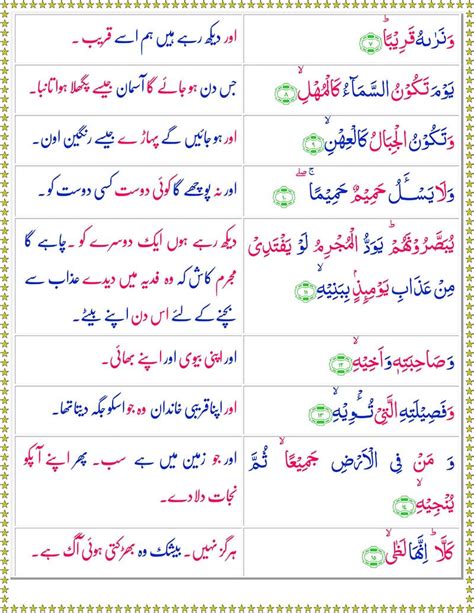 وَنَرٰىهُ قَرِيْبًاؕ ۝۷
اور دیکھ رہے ہیں ہم اسے قریب ۔
يَوْمَ تَكُوْنُ السَّمَآءُ كَالْمُهْلِۙ ۝۸
جس دن ہو جائے گا آسمان جیسے پگھلا ہوا تانبا۔
وَتَكُوْنُ الْجِبَالُ كَالْعِهْنِۙ ۝۹
اور ہو جائیں گے پہاڑ ے جیسے رنگین اون۔
وَلَا يَسْـَٔلُ حَمِيْمٌ حَمِيْمًاۚۖ ۝۱۰
اور نہ پوچھے گا کوئی دوست کسی دوست کو ۔
يُبَصَّرُوْنَهُمْؕ يَوَدُّ الْمُجْرِمُ لَوْ يَفْتَدِىْ
مِنْ عَذَابِ يَوْمِئِذٍۢ بِبَنِيْهِۙ ۝۱۱
دیکھ رہے ہوں ایک دوسرے کو ۔ چاہے گا
مجرم کاش کہ وہ فدیہ میں دیدے عذاب سے
بچنے کے لئے اس دن اپنے بیٹے۔
وَصَاحِبَتِهٖ وَاَخِيْهِۙ ۝۱۲
اور اپنی بیوی اور اپنے بھائی۔
وَفَصِيْلَتِهِ الَّتِىْ تُـْٔوِيْهِۙ ۝۱۳
اور اپنا قریبی خاندان وہ جو اسکو جگہ دیتا تھا۔
وَ مَنْ فِى الْاَرْضِ جَمِيْعًاۙ ثُمَّ
يُنْجِيْهِۙ ۝۱۴
اور جو زمین میں ہے سب۔ پھر اپنے آپکو
نجات دلا دے۔
كَلَّاؕ اِنَّهَا لَظٰىۙ ۝۱۵
ہرگز نہیں۔ بیشک وہ بھڑکتی ہوئی آگ ہے۔